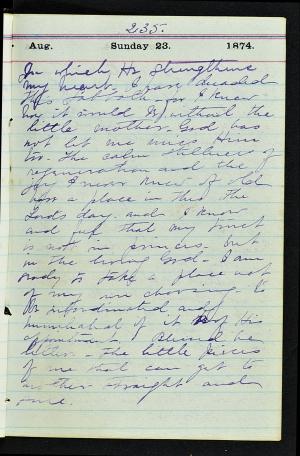 235.
Aug. Sunday 23. 1874.
In which He strengthens
my heart. I was dreaded
this Sabbath for I knew
how it would be without the
little mother. God has
not let me miss Him
too. The calm stillness of
regeneration and the
joy I never knew of old
has a place in this the
Lords day. and I know
and feel that my trust
is not in princes. but
in the living God. I am
ready to take a place not
of my own choosing. to
be subordinated and
of it of His
appointment.
better - the little pieces
of me that can get to
straight and